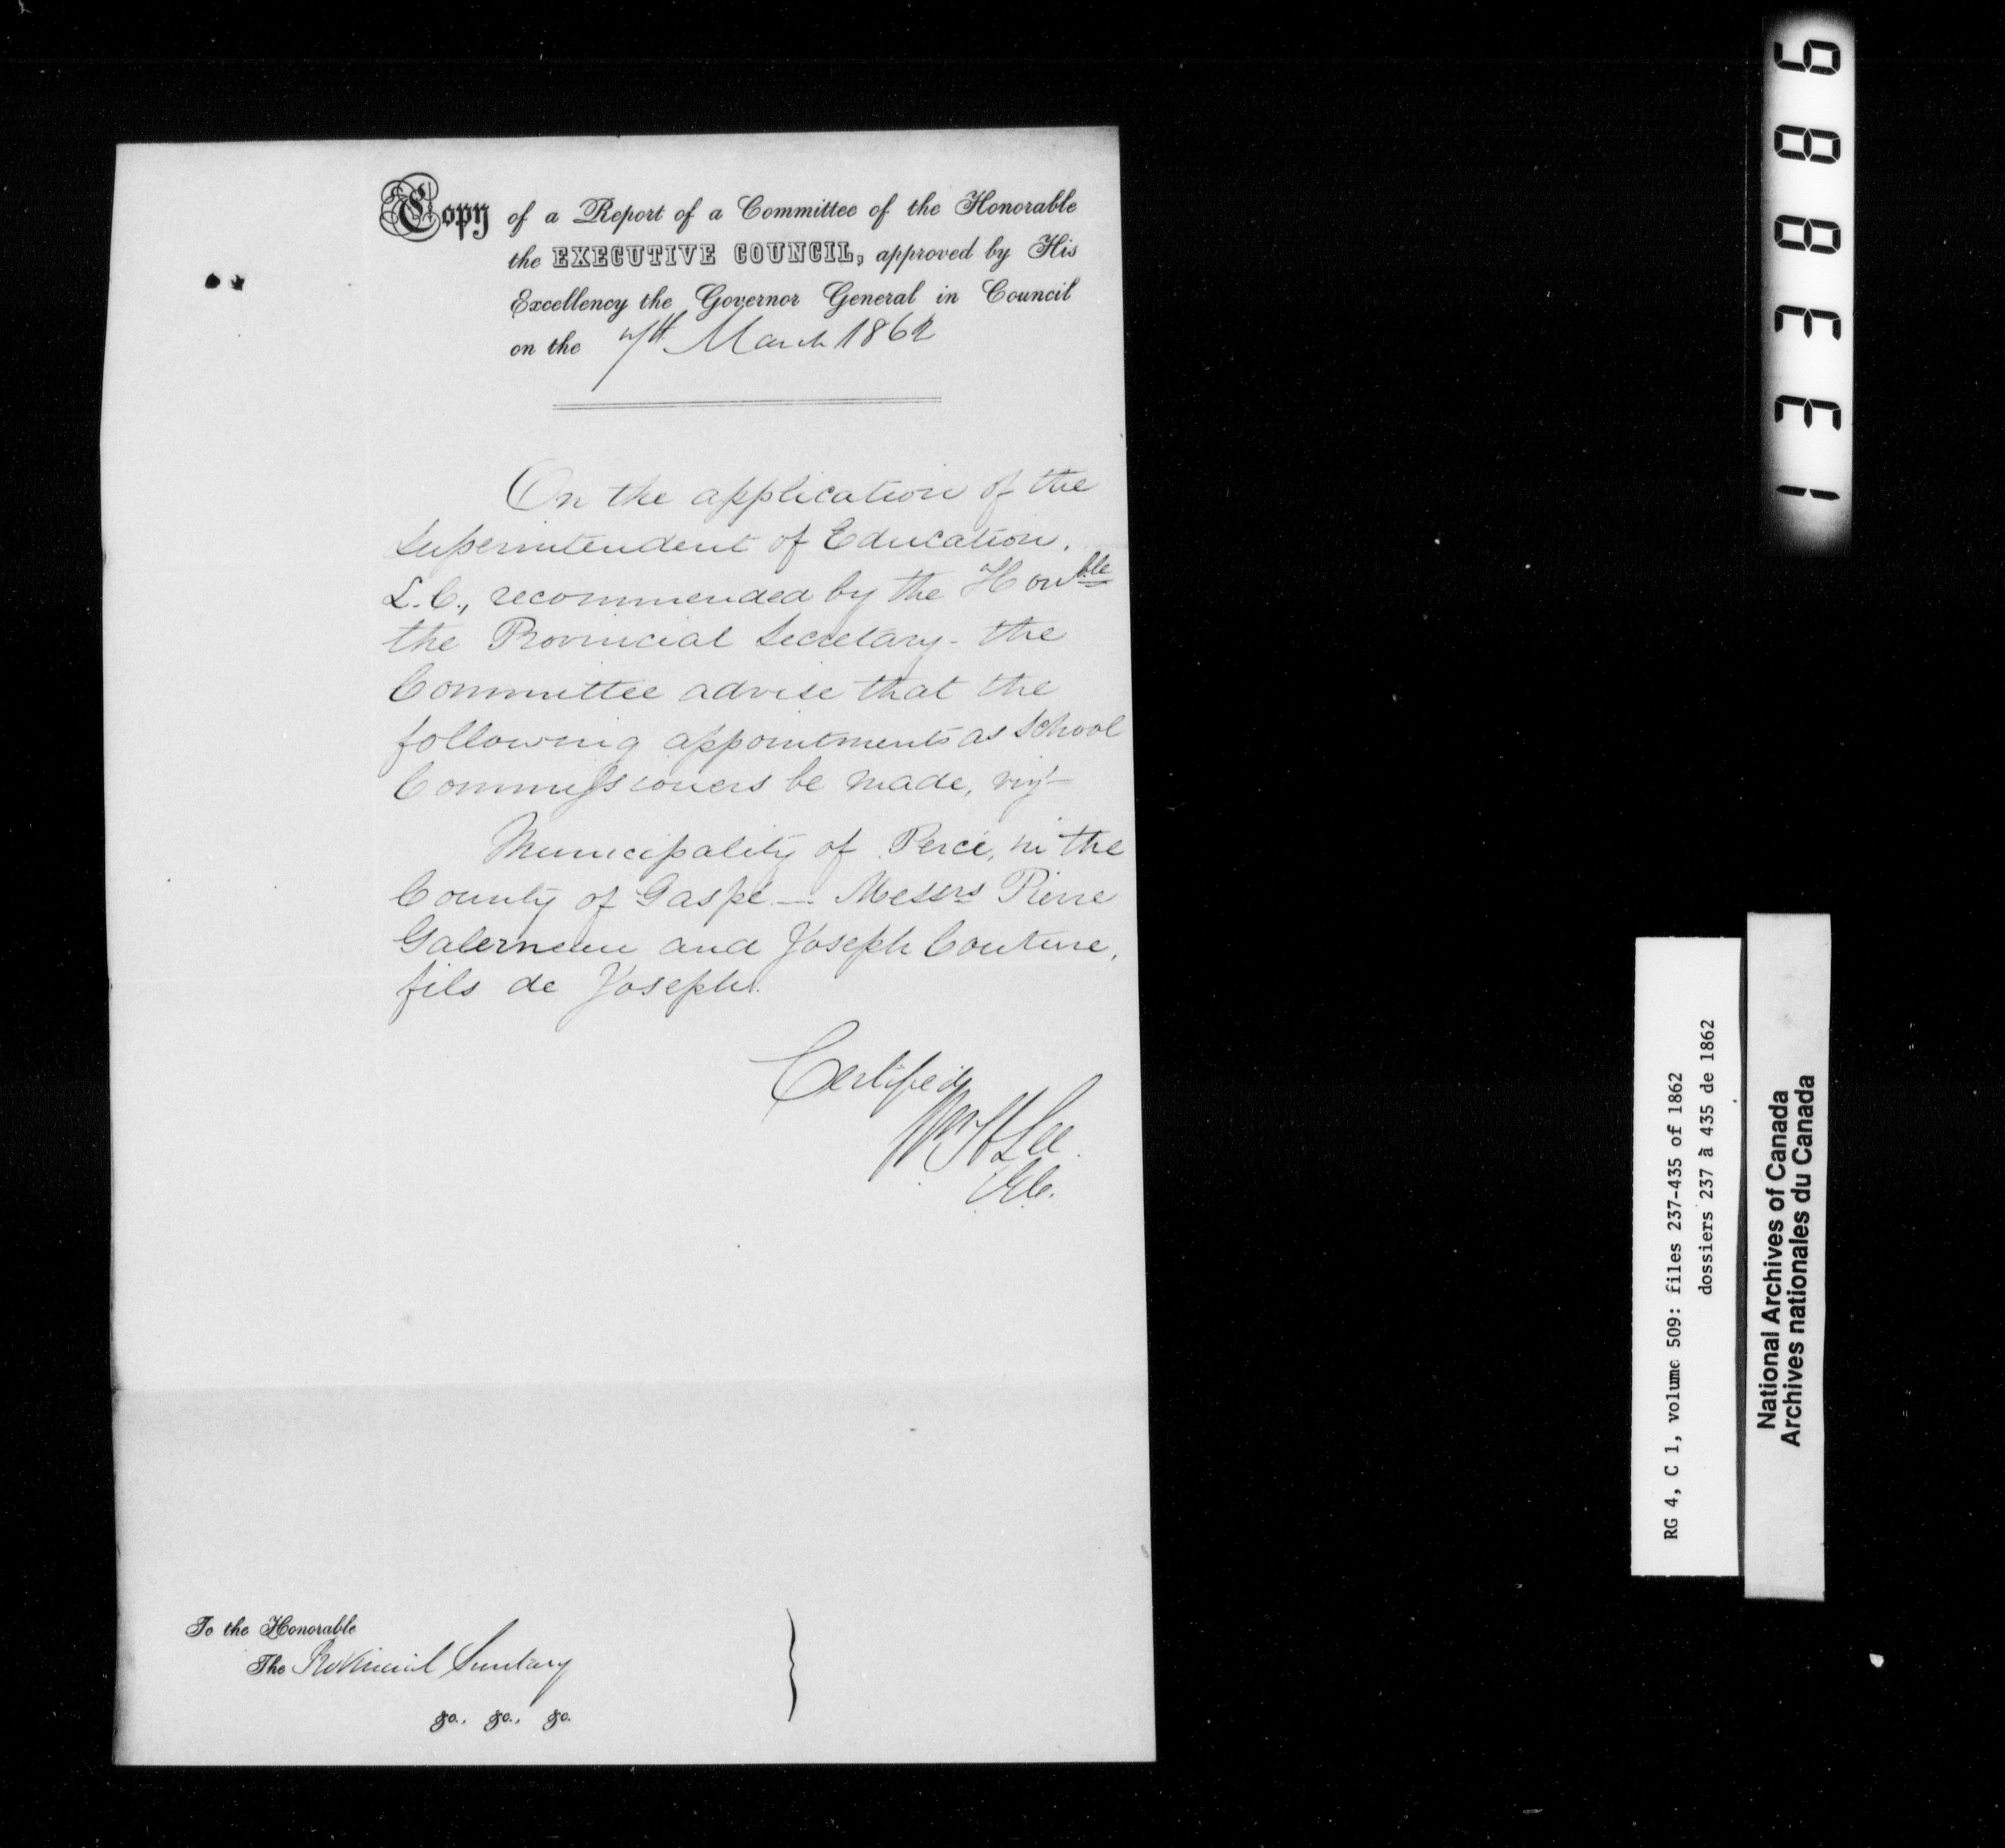 Copy of a Report of a Committee of the Honorable
the EXECUTIVE COUNCIL, approved by His
Excellency the Governor General in Council
on the 7th March 1862
On the application of the
Superintendent of Education,
L.C., recommended by the Honble
the Provincial Secretary - the
Committee advise that the
following appointments as School
Commissioners be made, viz:-
Municipality of Percé, in the
County of Gaspé. — Messrs Pierre
Galerneau and Joseph Couture,
fils de Joseph.
Certified
Wm H Lee
C.E.C.
To the Honorable
The Provincial Secretary
&c., &c., &c.
133886
RG 4, C 1, volume 509: files 237-435 of 1862
dossiers 237 à 435 de 1862
National Archives of Canada
Archives nationales du Canada